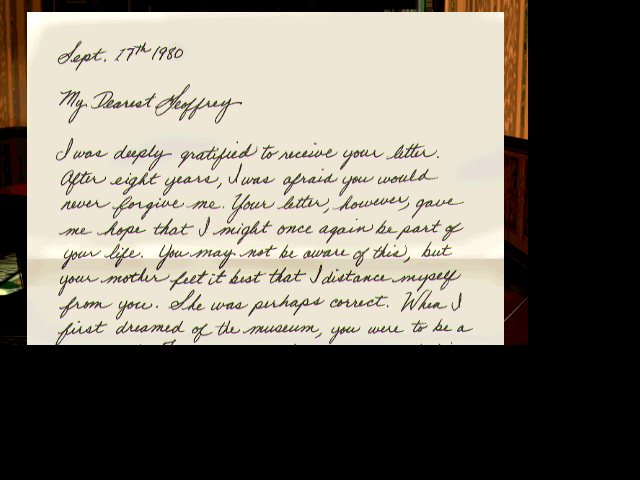 Sept. 17th 1980
My Dearest Geoffrey
I was deeply gratified to receive your letter.
After eight years, I was afraid you would
never forgive me. Your letter, however, gave
me hope that I might once again be part of
your life. You may not be aware of this, but
your mother felt it best that I distance myself
from you. She was perhaps correct. When I
first dreamed of the museum, you were to be a